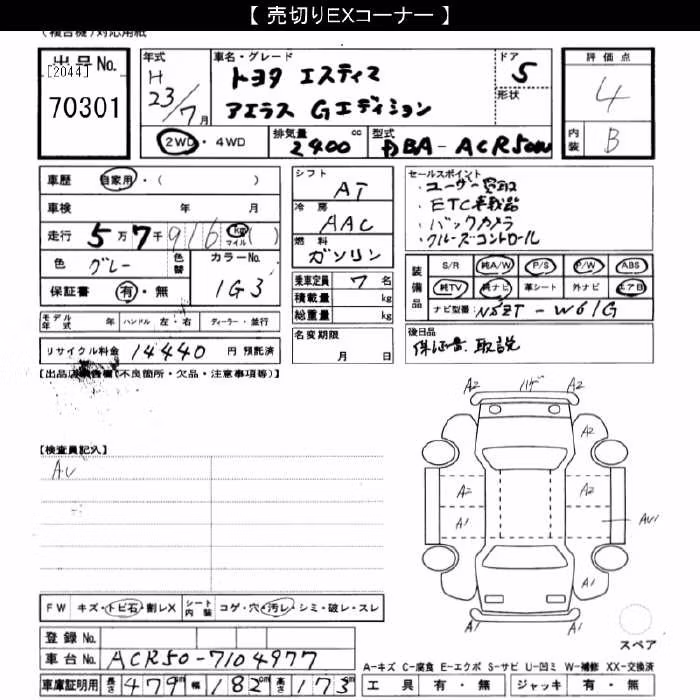 【 売切りEXコーナー 】
(複合機)対応用紙
出品No.
[2044]
70301
年式
H
23/7月
車名・グレード
トヨタ エスティマ
アエラス Gエディション
ドア
5
形状
評価点
4
内装
B
2WD・4WD
排気量
2400 cc
型式
DBA-ACR50W
車歴 自家用・( )
車検 年 月
走行 5万7千916 km マイル ( )
色 グレー
色替
カラーNo.
1G3
保証書 有・無
シフト
AT
冷房
AAC
燃料
ガソリン
乗車定員 7 名
積載量 kg
総重量 kg
セールスポイント
・ユーザー買取
・ETC車載器
・バックカメラ
・クルーズコントロール
装備品
S/R 純A/W P/S P/W ABS
純TV 純ナビ 革シート 外ナビ エアB
ナビ型番: NSZT-W61G
モデル年式 年 ハンドル 左・右 ディーラー・並行
名変期限
月 日
後日品
保証書 取説
リサイクル料金 14440 円 預託済
【出品店申告欄(不良箇所・欠品・注意事項等)】
【検査員記入】
AU
A2 ハゲ A2
A2
A2 A2
A1 A1 AU1
A1
A1 A1
スペア
FW キズ・トビ石・割レX シート内装 コゲ・穴・汚レ・シミ・破レ・スレ
登録No.
車台No. ACR50-7104977
A-キズ C-腐食 E-エクボ S-サビ U-凹ミ W-補修 XX-交換済
車庫証明用 長さ 479cm 幅 182cm 高さ 173cm
工具 有・無 ジャッキ 有・無